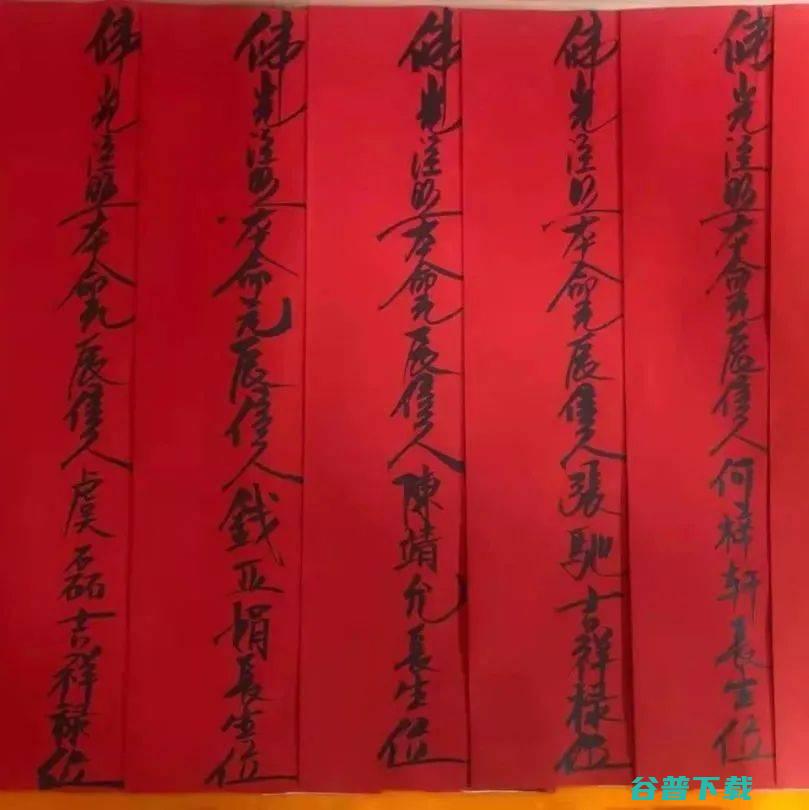 佛光注照本命元辰佳人何梓轩長生位
佛光注照本命元辰佳人張馳吉祥禄位
佛光注照本命元辰佳人陳靖允長生位
佛光注照本命元辰佳人錢正娟長生位
佛光注照本命元辰佳人虞磊吉祥禄位
谷普下载